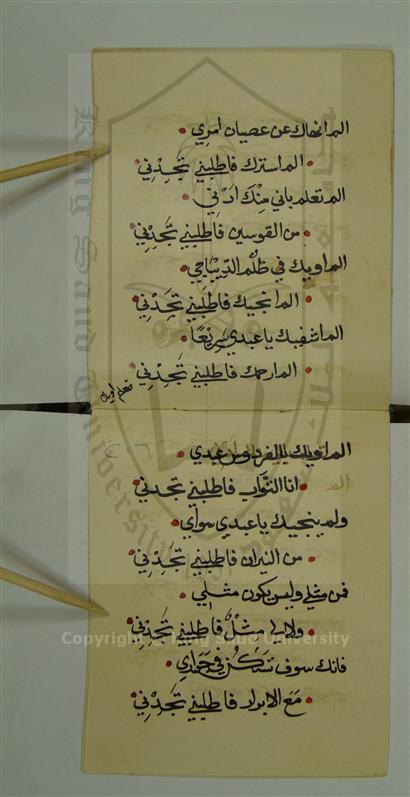 الم انهاك عن عصيان امري
الم استرك فاطلبني تجدني
الم تعلم باني منك ادني
من القوسين فاطلبني تجدني
الم اويك في ظلم الدياجي
الم انجيك فاطلبني تجدني
الم اشفيك يا عبدي سريعا
الم ارحمك فاطلبني تجدني
الفردوس عبدي
انا التواب فاطلبني تجدني
ولم ينجيك يا عبدي سواي
من النيران فاطلبني تجدني
فمن مثلي وليس يكون مثلي
ولا لي مثل فاطلبني تجدني
فانك سوف تسكن في جواري
مع الابرار فاطلبني تجدني
King Saud University
Copyright © King Saud University